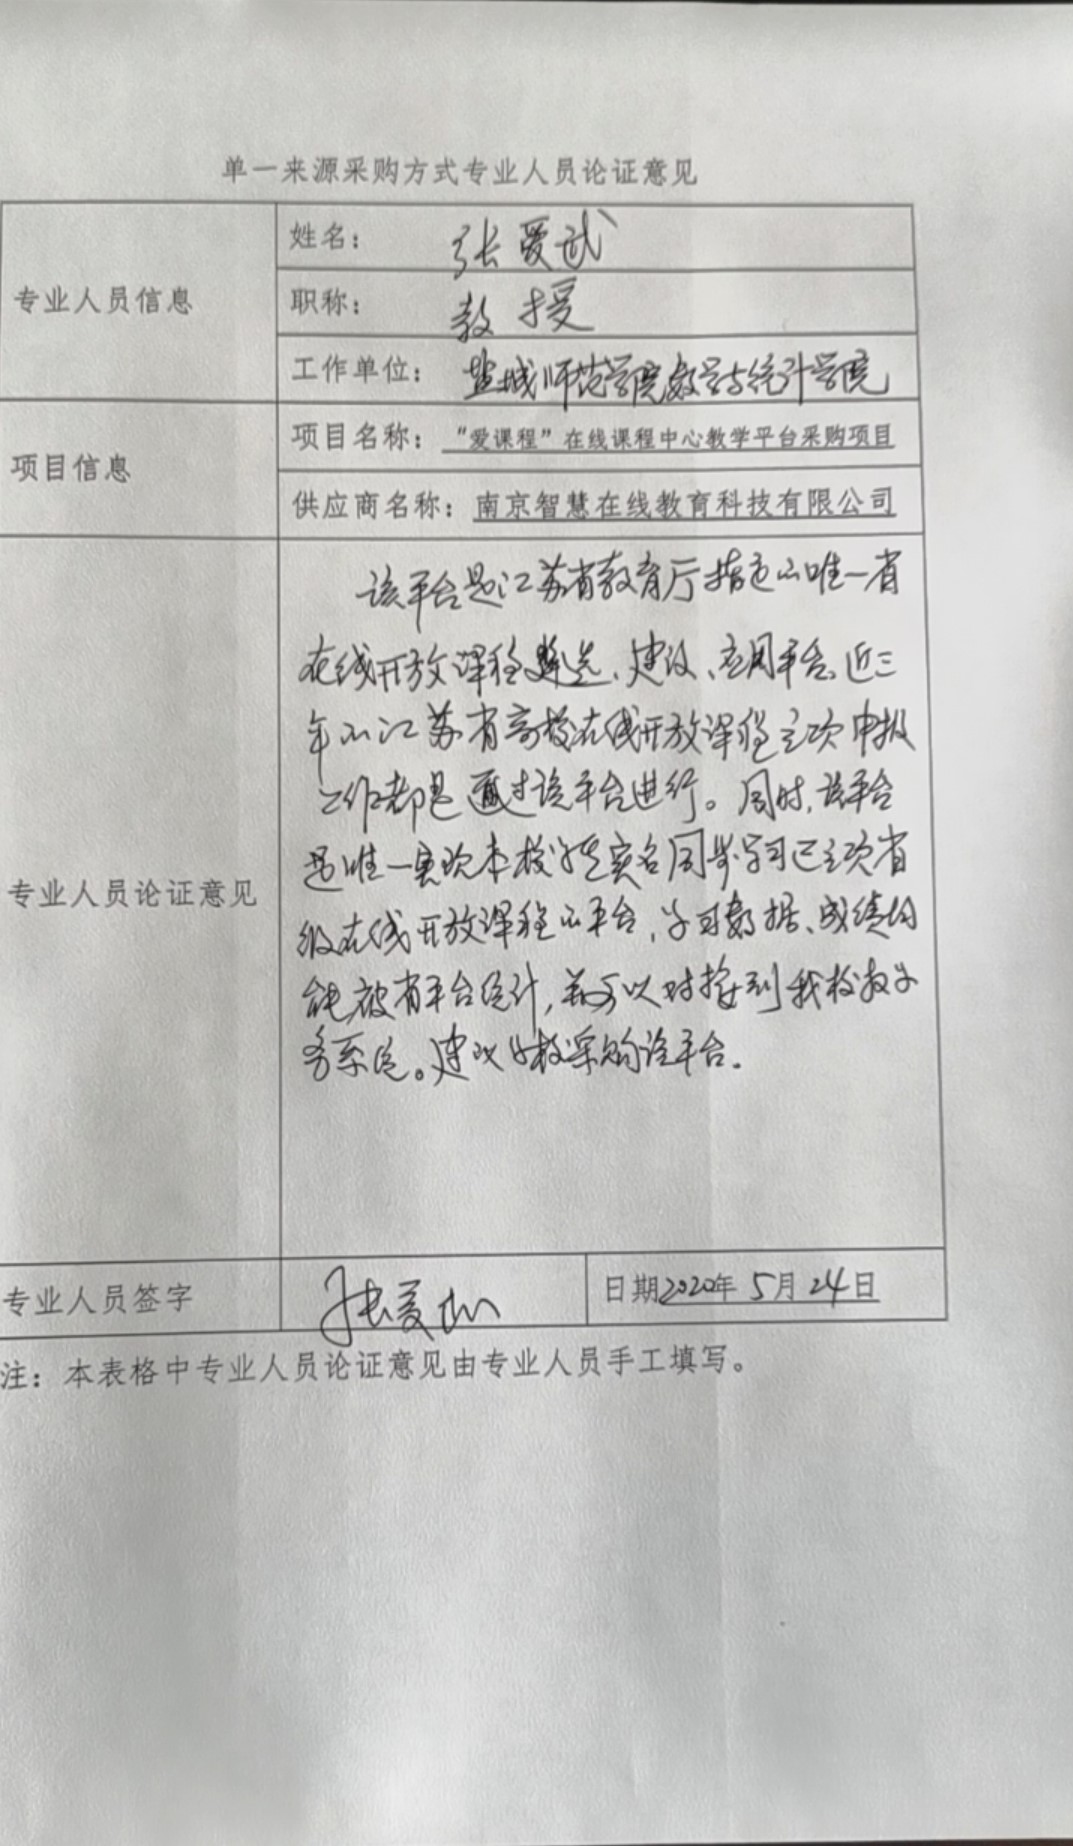 单一来源采购方式专业人员论证意见
专业人员信息
姓名: 张爱武
职称: 教授
工作单位: 盐城师范学院数学与统计学院
项目信息
项目名称: “爱课程”在线课程中心教学平台采购项目
供应商名称: 南京智慧在线教育科技有限公司
专业人员论证意见
该平台是江苏省教育厅指定的唯一省
在线开放课程遴选、建设、应用平台,近三
年的江苏省高校在线开放课程立项申报
工作都是通过该平台进行。同时,该平台
是唯一实现本校学生实名同步学习已立项省
级在线开放课程的平台,学习数据、成绩均
能被省平台统计,并可以对接到我校教
务系统。建议学校采购该平台.
专业人员签字
张爱武
日期2020年 5月 24日
注: 本表格中专业人员论证意见由专业人员手工填写。